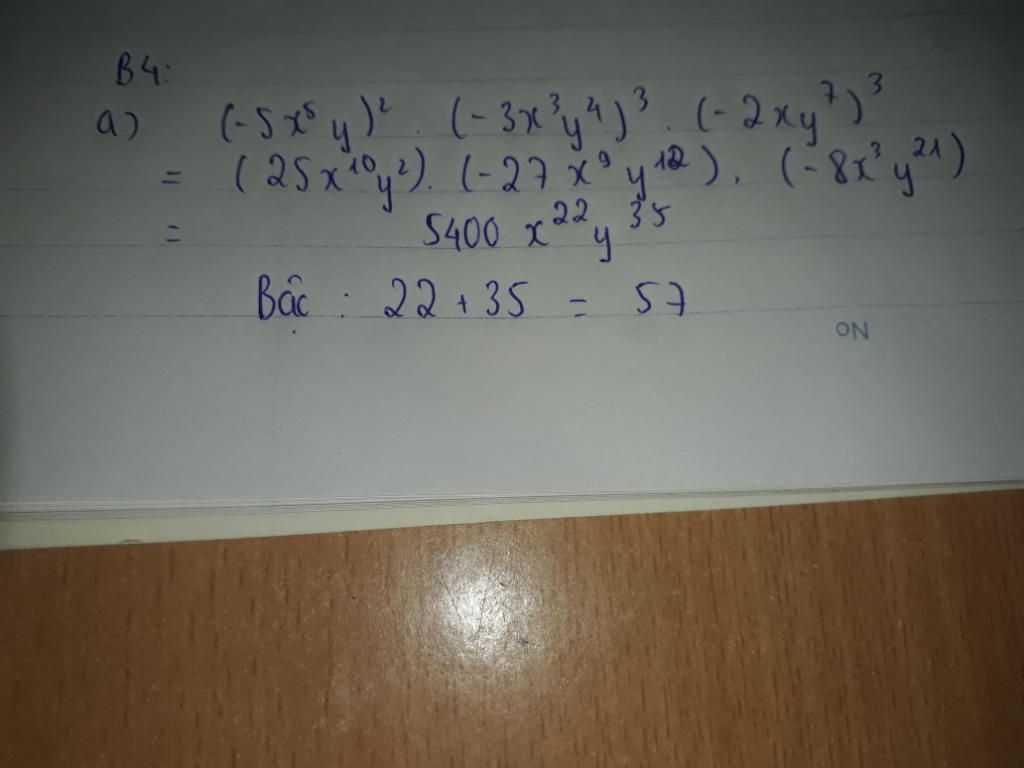 B4:
a) (-5x⁵y)² . (-3x³y⁴)³ . (-2xy⁷)³
= (25x¹⁰y²). (-27x⁹y¹²). (-8x³y²¹)
= 5400 x²²y³⁵
Bậc : 22 + 35 = 57
NO